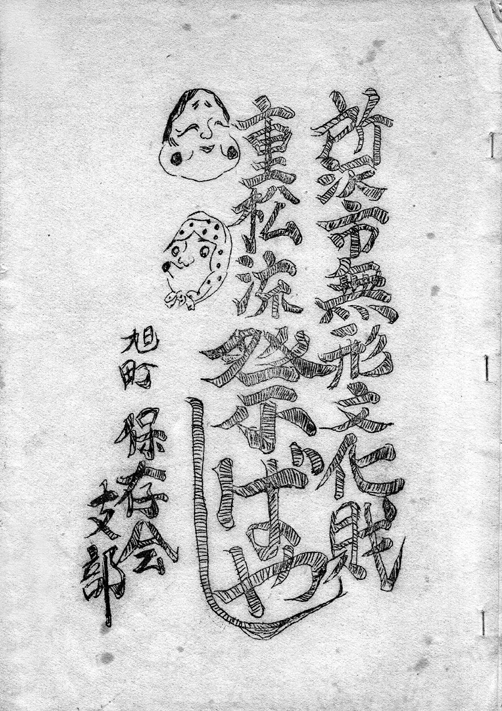 所沢市無形文化財
重松流祭ばやし
旭町 保存会
支部